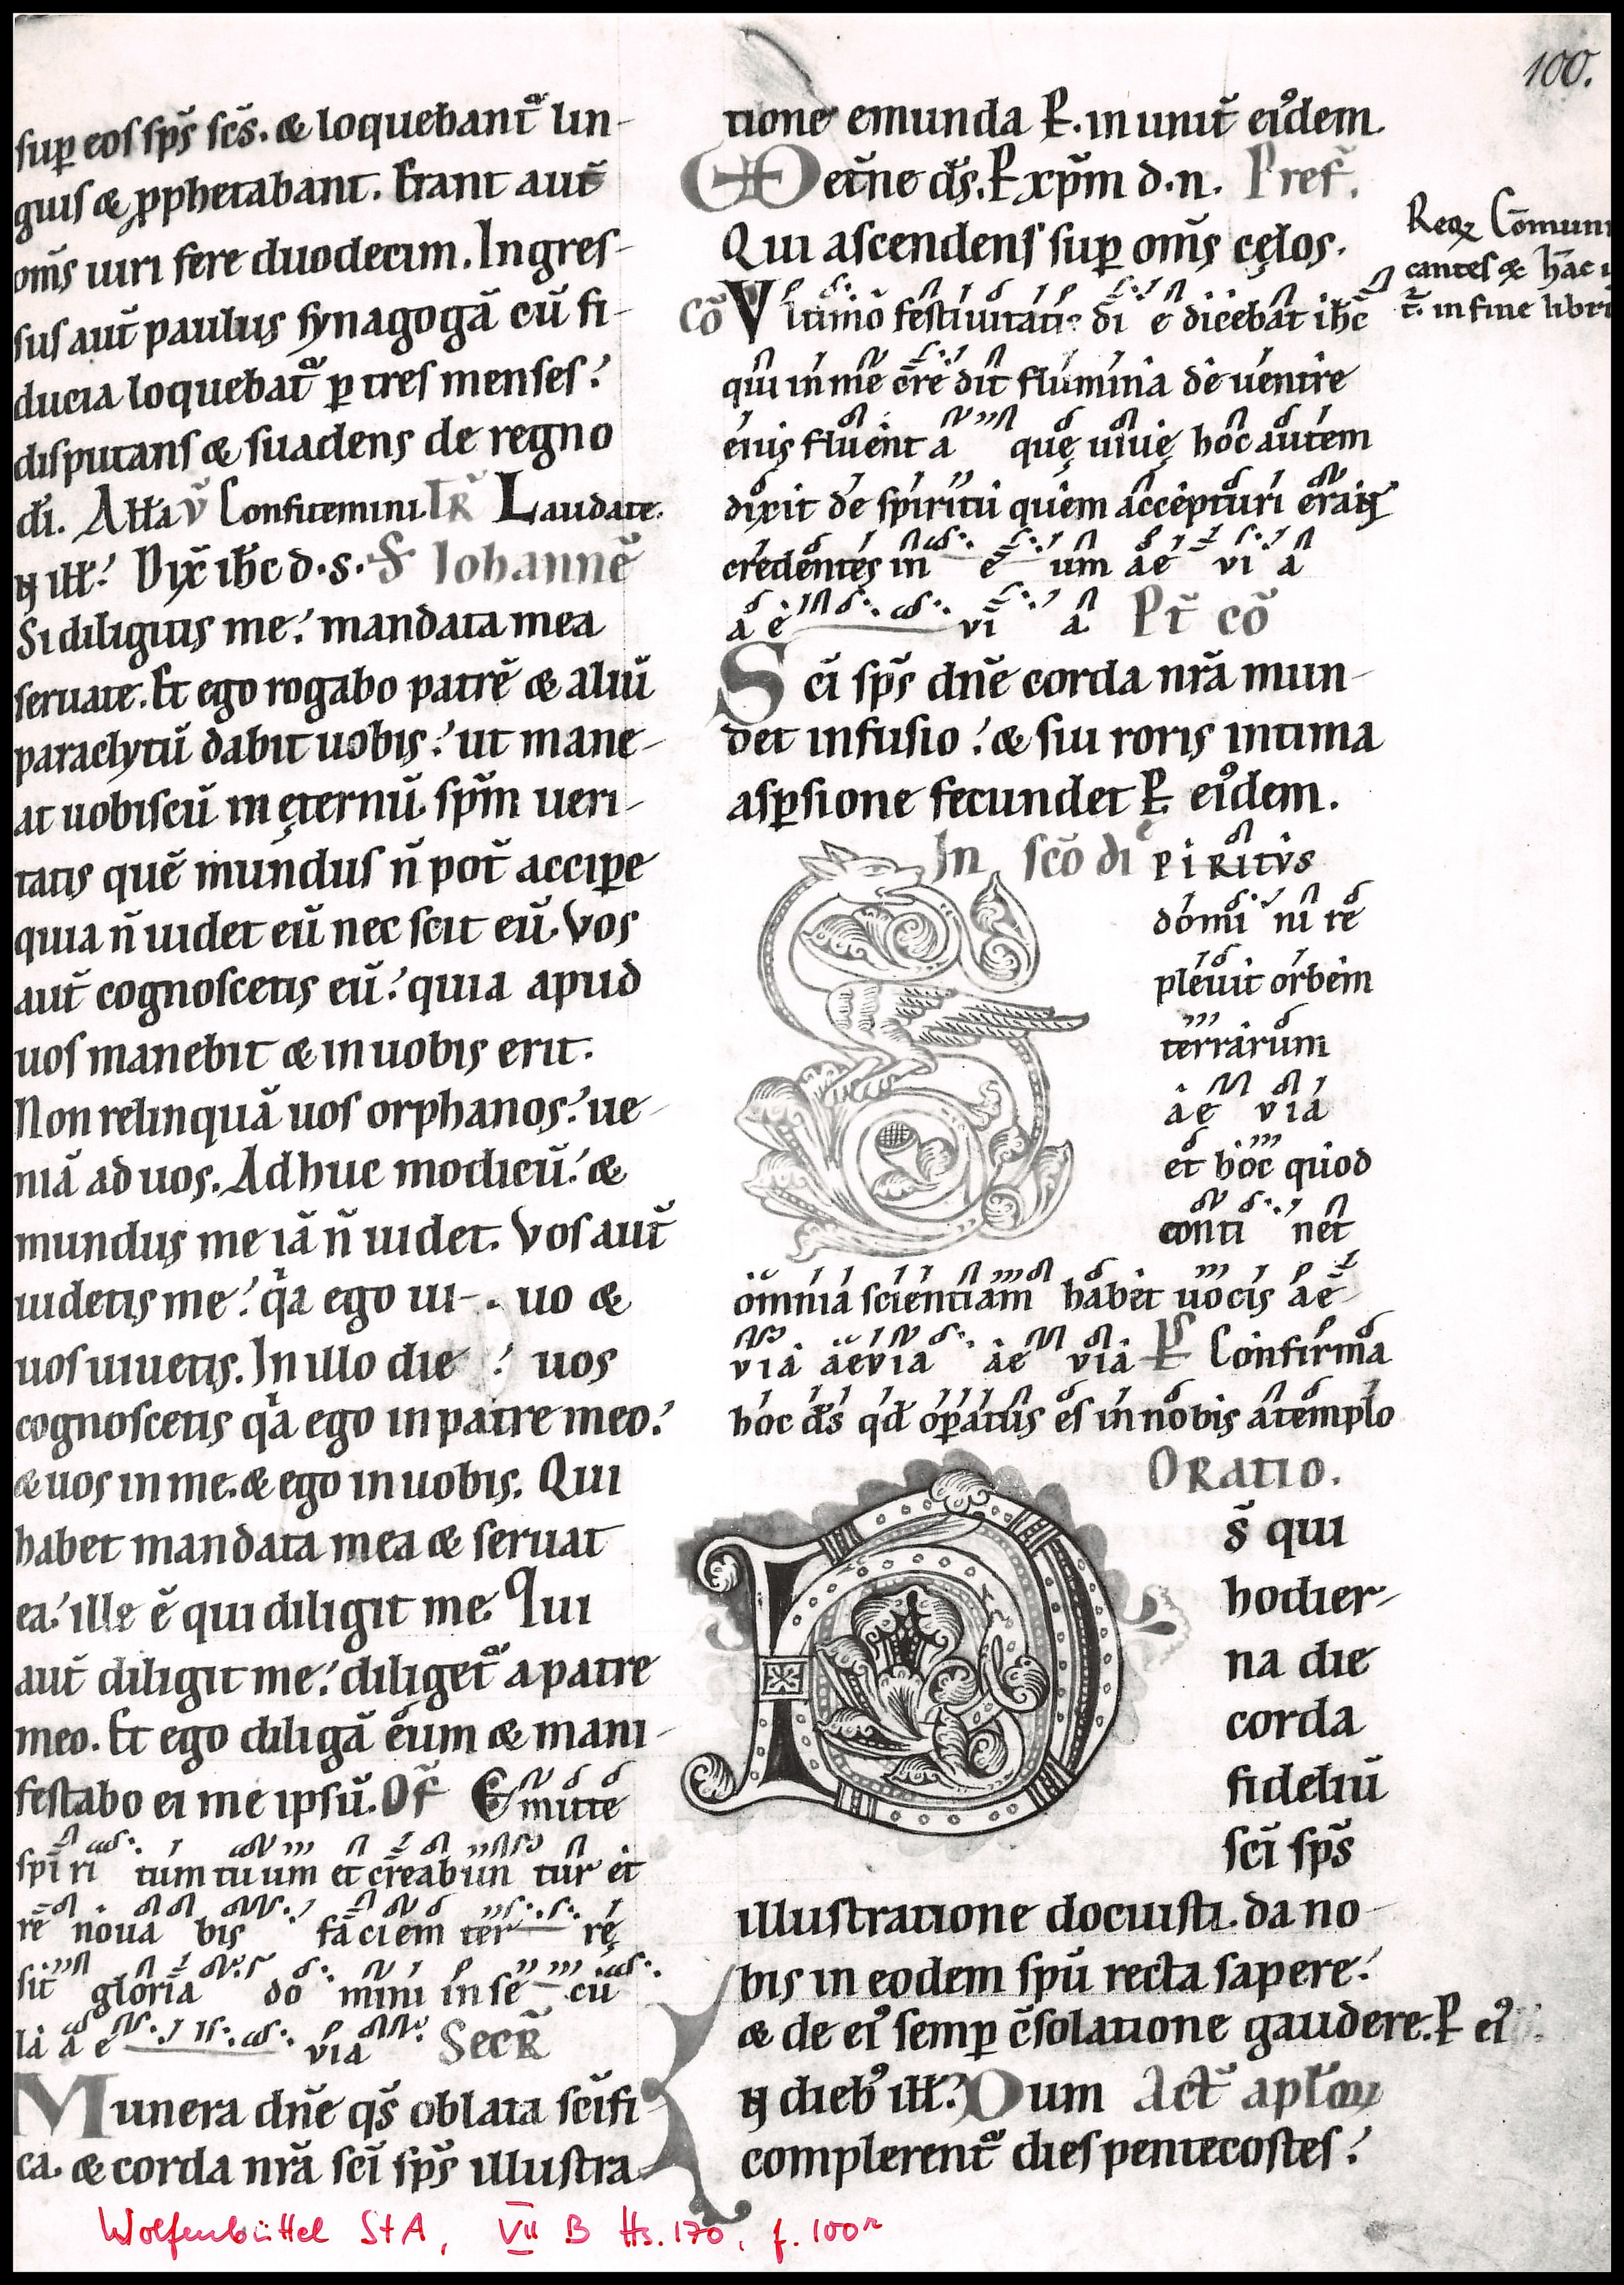 100.
sup eos sps̄ scs̄. & loquebant̄ lin-
guis & pphetabant. Erant aut̄
om̄s uiri fere duodecim. Ingres-
sus aut̄ paulus synagogā cū fi-
ducia loquebat̄ p tres menses.
disputans & suadens de regno
dī. Alla v̄ Confitemini. Tr̄ Laudate.
ill̄. Dix̄ ih̄c d. s. Iohannē
Si diligitis me. mandata mea
seruate. Et ego rogabo patrē & aliū
paraclytū dabit uobis. ut mane-
at uobiscū in ęternū. sp̄m ueri-
tatis quē mundus n̄ pot̄ accipe
quia n̄ uidet eū nec scit eū. Vos
aut̄ cognoscetis eū. quia apud
uos manebit & in uobis erit.
Non relinquā uos orphanos. ue-
niā ad uos. Adhuc modicū. &
mundus me iā n̄ uidet. Vos aut̄
uidetis me. qa ego ui- uo &
uos uiuetis. In illo die uos
cognoscetis qa ego in patre meo.
& uos in me. & ego in uobis. Qui
habet mandata mea & seruat
ea. ille ē qui diligit me. Qui
aut̄ diligit me. diliget̄ a patre
meo. Et ego diligā eum & mani-
festabo ei me ipsū. Of̄ Emitte
spiri tum tuum et creabun tur et
re noua bis faciem ter rę
sit gloria do mini in se cu
la a e via Secr̄
Munera dn̄e qs̄ oblata scīfi
ca. & corda nrā scī sps̄ illustra
tione emunda P. in unit̄ eidem.
VD et̄ne ds̄. P xpm̄ d. n. Pref̄.
Qui ascendens sup om̄s cęlos.
Req̄ Cōmuni
cantes & hāc
t̄. in fine libri
Cō Vltimo festiuitatis di e dicebat ih̄c
qui in me cre dit flumina de uentre
eius fluent a quę uiuę hoc autem
dixit de spiritu quem accepturi erant
credentes in e um ae vi a
a e vi a. Pt̄ cō
Scī sps̄ dn̄e corda nrā mun-
det infusio. & sui roris intima
aspsione fecundet P. eidem.
In scō di
Spiritvs
domi ni re
pleuit orbem
terrarum
ae via
et hoc quod
conti net
omnia scientiam habet uocis ae
via aevia ae via Ps̄ Confirma
hoc ds̄ qd̄ opatus es in nobis a templo
Oratio.
Ds̄ qui
hodier-
na die
corda
fideliū
scī sps̄
illustratione docuisti. da no-
bis in eodem spū recta sapere.
& de ei' semp c̄solatione gaudere. P ei'
dieb' ill̄. Dum Act̄ aplōrum
complerent̄ dies pentecostes.
Wolfenbüttel StA, VII B Hs. 170, f. 100r